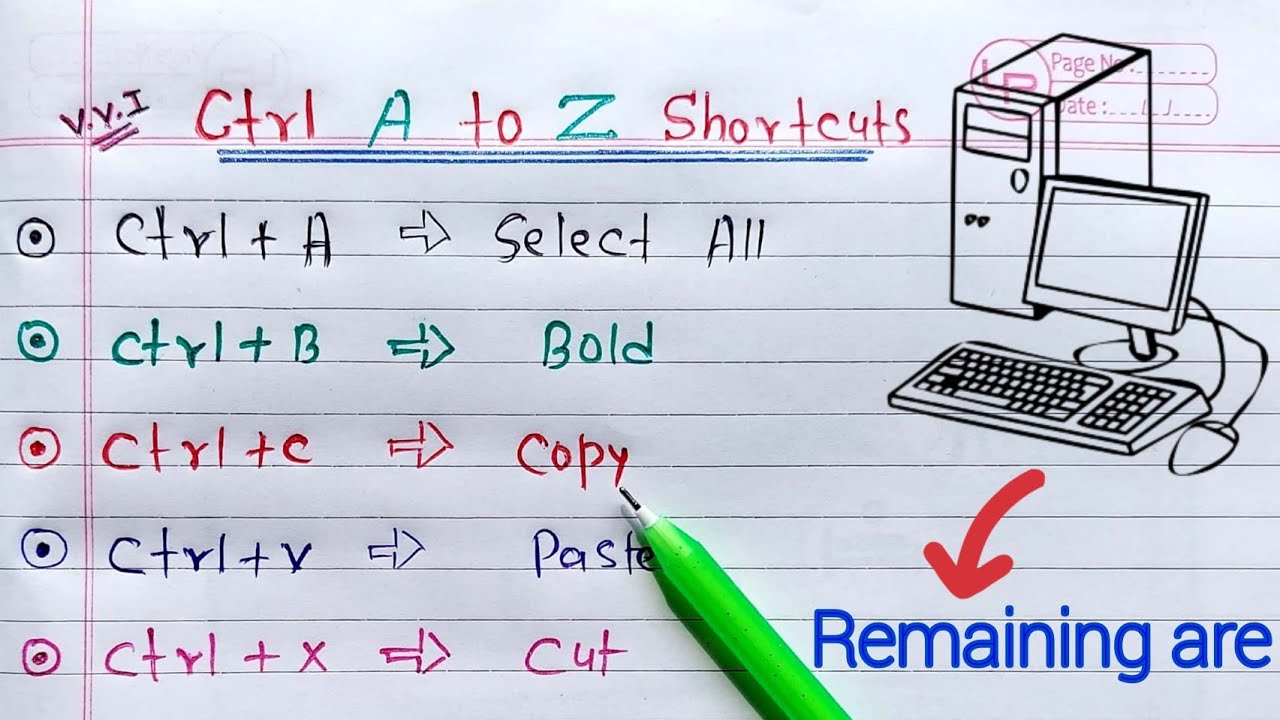 Page No :
Date :
V.V.I Ctrl A to Z Shortcuts
Ctrl + A ⇨ Select All
Ctrl + B ⇨ Bold
Ctrl + C ⇨ Copy
Ctrl + V ⇨ Paste
Ctrl + X ⇨ Cut
Remaining are